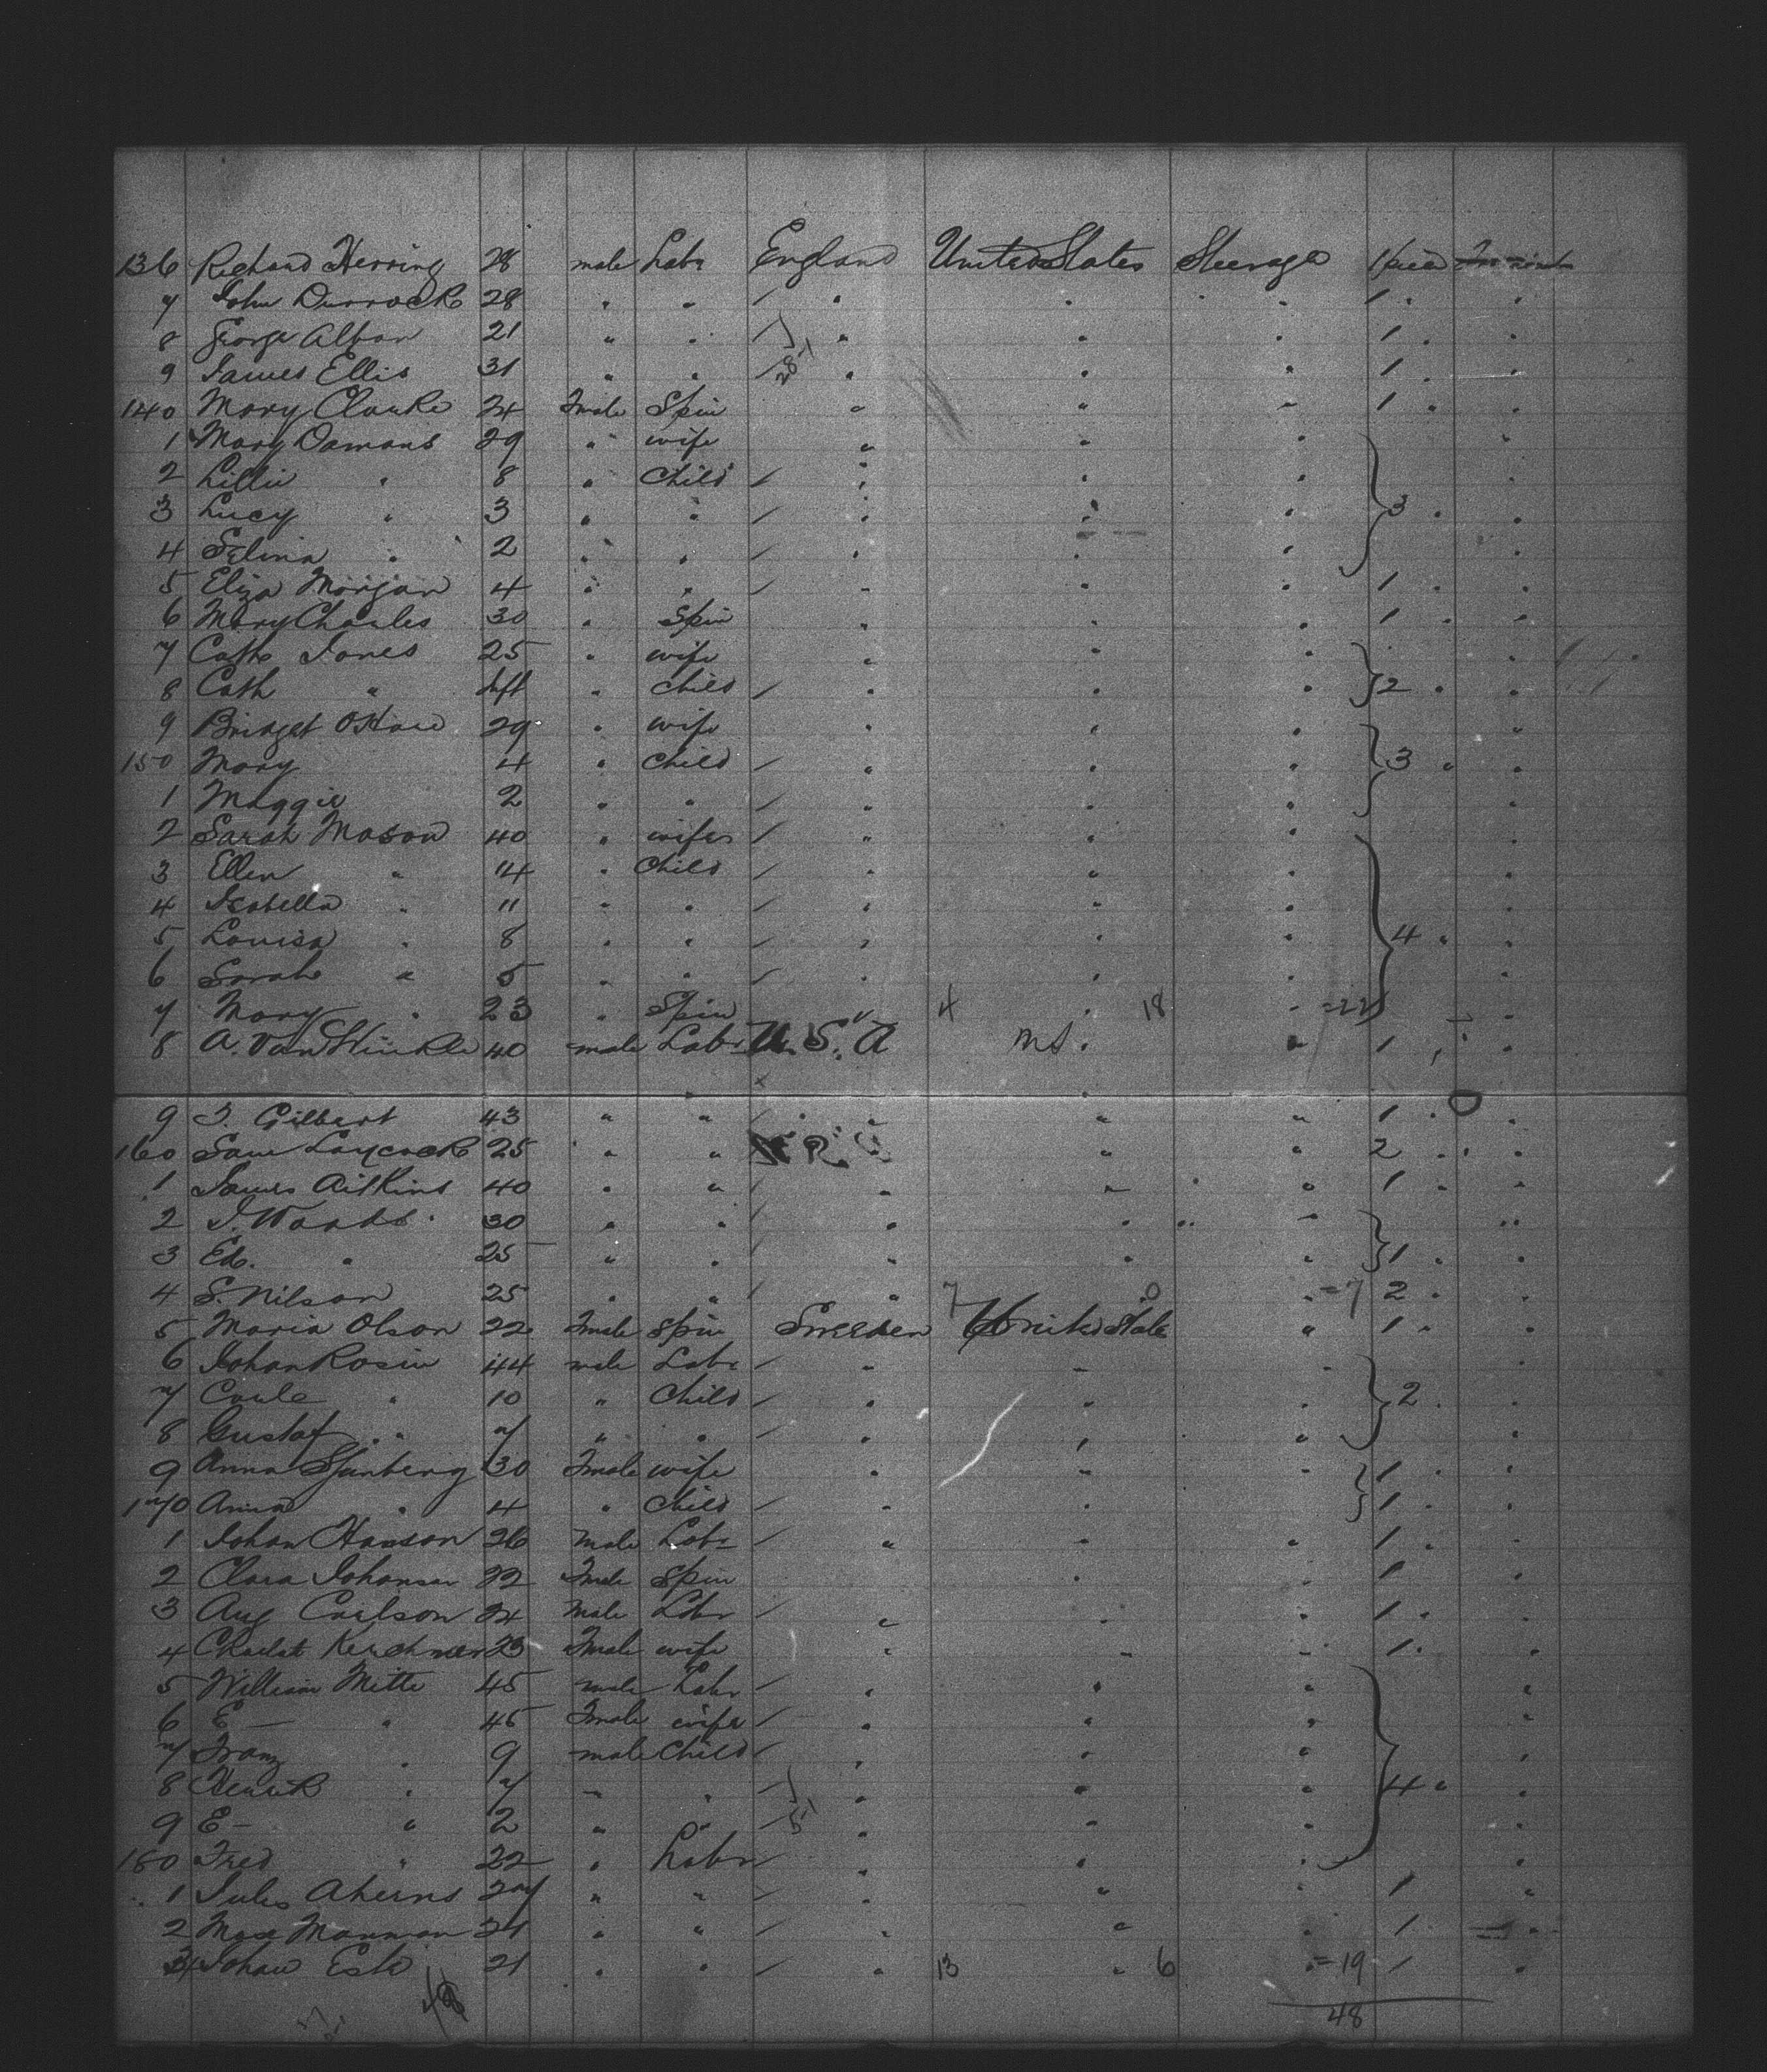 136 Richard Herring 28 male Labr England United States Steerage 1 piece
7 John Durrock 28 " " " " " 1 "
8 George Alban 21 " " " " " 1 "
9 James Ellis 31 " " " " " 1 "
140 Mary Clarke 24 Fmale Spin " " " 1 "
1 Mary Damans 29 " wife " " "
2 Lillie " 8 " Child " " "
3 Lucy " 3 " " " " " 3 "
4 Selina " 2 " " " " "
5 Eliza Morgan 4 " " " " " 1 "
6 Mary Charles 30 " Spin " " " 1 "
7 Cath Jones 25 " wife " " "
8 Cath " Inft " child " " " 2 "
9 Bridget O'Hare 29 " wife " " "
150 Mary 4 " Child " " " 3 "
1 Maggie 2 " " " " "
2 Sarah Mason 40 " wife " " "
3 Ellen " 14 " Child " " "
4 Isabella " 11 " " " " "
5 Louisa " 8 " " " " " 4 "
6 Sarah " 5 " " " " "
7 Mary " 23 " Spin " 4 " 18 " =22
8 A. Van Winkle 40 male Labr U.S.A " 1 "
9 T. Gilbert 43 " " " " " 1 "
160 Sam Laycock 25 " " " " " 2 "
1 James Aitkins 40 " " " " " 1 "
2 J. Woods 30 " " " " "
3 Ed. " 25 " " " " " 1 "
4 S. Nilson 25 " " " 7 0 " =7 2 "
5 Maria Olson 22 Fmale Spin Sweeden United State " 1 "
6 Johan Rosin 44 male Labr " " "
7 Carle " 10 " Child " " " 2 "
8 Gustaf " 7 " " " " "
9 Anna Spanberg 30 Fmale wife " " 1 "
170 Anna " 4 " Child " " " 1 "
1 Johan Hanson 26 male Labr " " " 1 "
2 Clara Johanson 22 Fmale Spin " " 1 "
3 Aug Carlson 24 male Labr " " " 1 "
4 Kerchner 23 Fmale wife " " " 1 "
5 William Mitte 45 male Labr " " "
6 E — " 45 Fmale wife " " "
7 Franz " 9 male Child " " "
8 Henrik " 7 " " " " " 4 "
9 E — " 2 " " " " "
180 Fred " 22 " Labr " " "
1 Jules Aherns 27 " " " " 1
2 Max Manman 21 " " " " " 1
3 Johan Esk 21 " " " 13 " 6 " =19 1
48